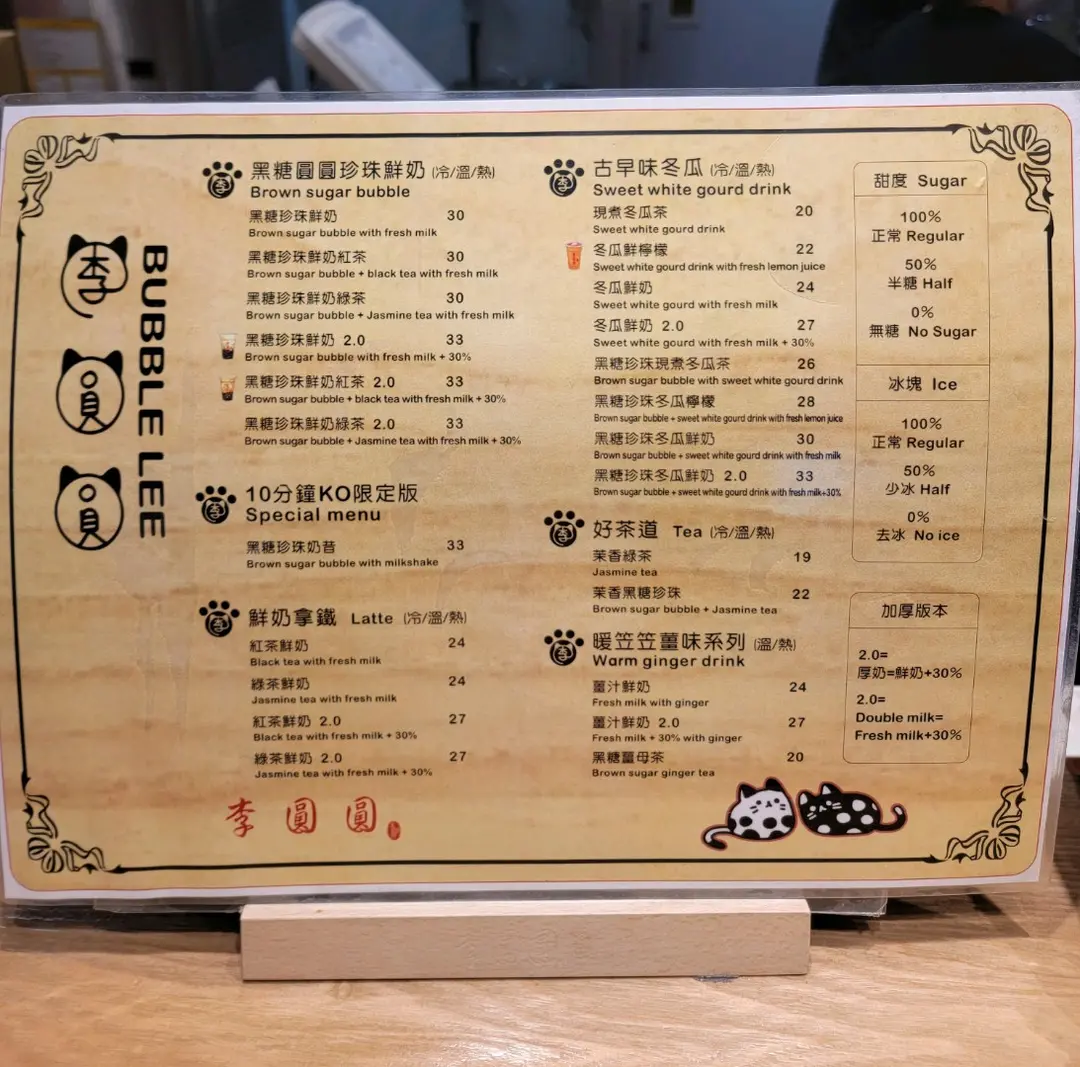 李
圓
圓
BUBBLE LEE
黑糖圓圓珍珠鮮奶 (冷/溫/熱)
Brown sugar bubble
黑糖珍珠鮮奶 30
Brown sugar bubble with fresh milk
黑糖珍珠鮮奶紅茶 30
Brown sugar bubble + black tea with fresh milk
黑糖珍珠鮮奶綠茶 30
Brown sugar bubble + Jasmine tea with fresh milk
黑糖珍珠鮮奶 2.0 33
Brown sugar bubble with fresh milk + 30%
黑糖珍珠鮮奶紅茶 2.0 33
Brown sugar bubble + black tea with fresh milk + 30%
黑糖珍珠鮮奶綠茶 2.0 33
Brown sugar bubble + Jasmine tea with fresh milk + 30%
10分鐘KO限定版
Special menu
黑糖珍珠奶昔 33
Brown sugar bubble with milkshake
鮮奶拿鐵 Latte (冷/溫/熱)
紅茶鮮奶 24
Black tea with fresh milk
綠茶鮮奶 24
Jasmine tea with fresh milk
紅茶鮮奶 2.0 27
Black tea with fresh milk + 30%
綠茶鮮奶 2.0 27
Jasmine tea with fresh milk + 30%
李 圓 圓
古早味冬瓜 (冷/溫/熱)
Sweet white gourd drink
現煮冬瓜茶 20
Sweet white gourd drink
冬瓜鮮檸檬 22
Sweet white gourd drink with fresh lemon juice
冬瓜鮮奶 24
Sweet white gourd with fresh milk
冬瓜鮮奶 2.0 27
Sweet white gourd with fresh milk + 30%
黑糖珍珠現煮冬瓜茶 26
Brown sugar bubble with sweet white gourd drink
黑糖珍珠冬瓜檸檬 28
Brown sugar bubble + sweet white gourd drink with fresh lemon juice
黑糖珍珠冬瓜鮮奶 30
Brown sugar bubble + sweet white gourd drink with fresh milk
黑糖珍珠冬瓜鮮奶 2.0 33
Brown sugar bubble + sweet white gourd drink with fresh milk+30%
好茶道 Tea (冷/溫/熱)
茉香綠茶 19
Jasmine tea
茉香黑糖珍珠 22
Brown sugar bubble + Jasmine tea
暖笠笠薑味系列 (溫/熱)
Warm ginger drink
薑汁鮮奶 24
Fresh milk with ginger
薑汁鮮奶 2.0 27
Fresh milk + 30% with ginger
黑糖薑母茶 20
Brown sugar ginger tea
甜度 Sugar
100%
正常 Regular
50%
半糖 Half
0%
無糖 No Sugar
冰塊 Ice
100%
正常 Regular
50%
少冰 Half
0%
去冰 No ice
加厚版本
2.0=
厚奶=鮮奶+30%
2.0=
Double milk=
Fresh milk+30%